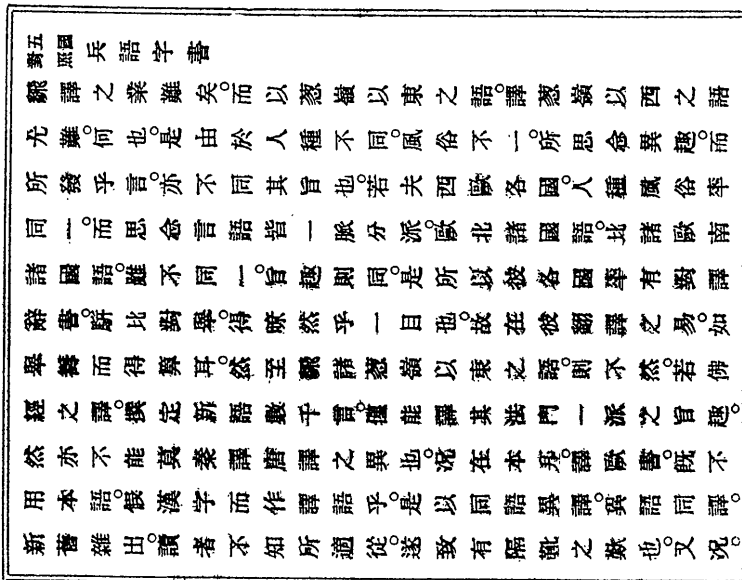 五國對照兵語字書
飜譯之業難矣。而以葱嶺以東之語。譯葱嶺以西之語
尤難。何也。是由於人種不同。風俗不一。所思念異趣。而
所發乎言。亦不同其旨也。若夫西歐各國。人種風俗率
同一。而思念言語皆一脈分派。歐北諸國語。比諸歐南
諸國語。雖不同一。旨趣則同。是所以彼各國率有對譯
辭書。駢比對擧。得瞭然乎一目也。故在彼翻譯之易。如
擧籌而得算耳。然至飜諸葱嶺以東之語。則不然。若佛
經之譯。撰定新語數千言。僅能譯其法門一派之旨趣。
然亦不能莫秦譯唐譯之異也。况在本邦。譯歐書。旣不
用本語。假漢字而作譯語乎。是以同語異譯。異語同譯。
新舊雜出。讀者不知所適從。遂致有隔靴之歎也。又况。